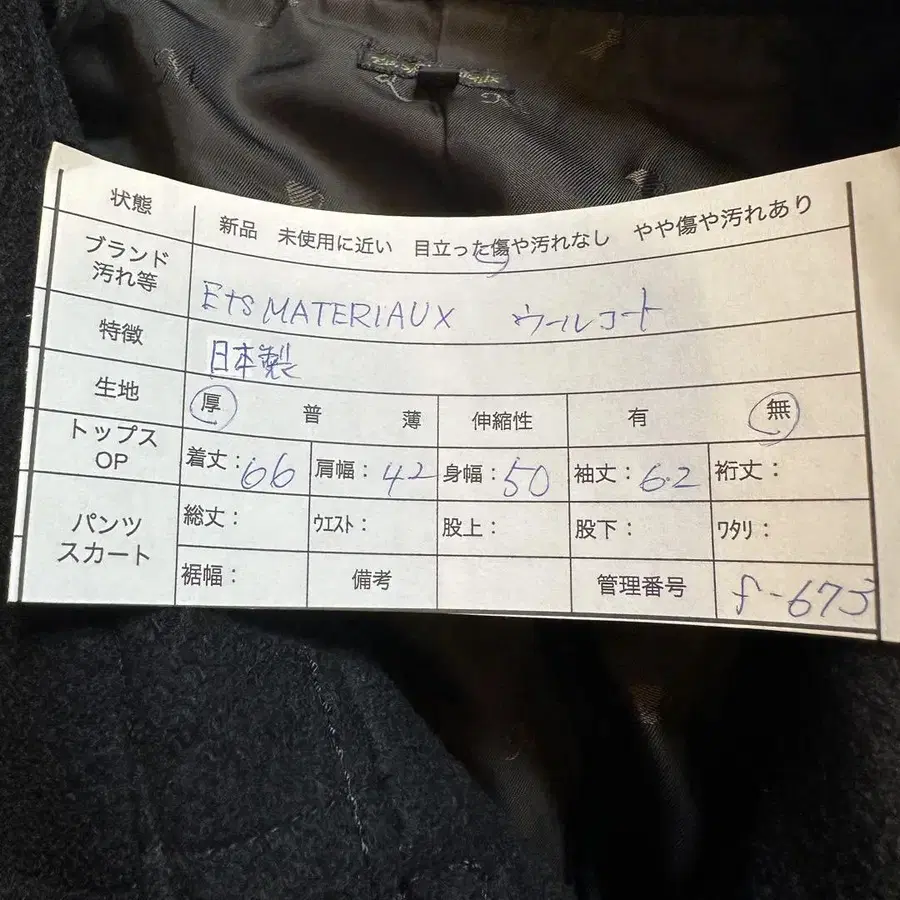 状態 新品 未使用に近い 目立った傷や汚れなし やや傷や汚れあり
ブランド 汚れ等 Ets MATERIAUX ウールコート
特徴 日本製
生地 厚 普 薄 伸縮性 有 無
トップス OP 着丈:66 肩幅:42 身幅:50 袖丈:62 裄丈:
パンツ スカート 総丈: ウエスト: 股上: 股下: ワタリ:
裾幅: 備考 管理番号 f-673